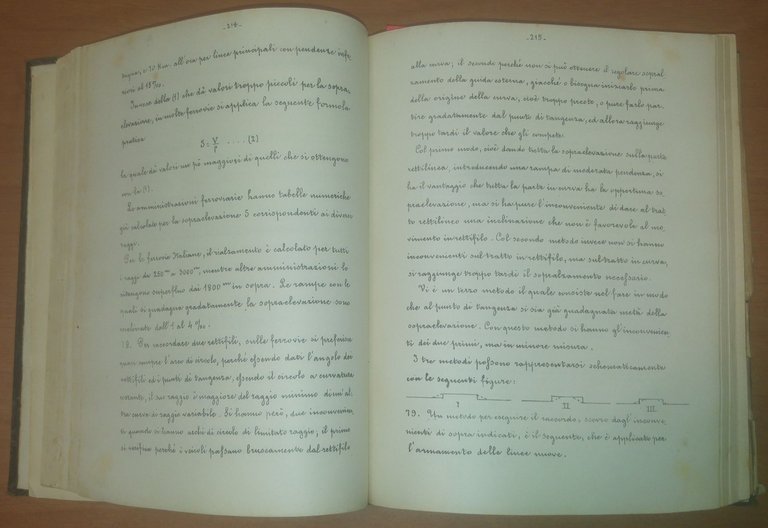 - 214 -
, e 70 Km. all'ora per linee principali con pendenze infe-
riori al 15 ‰.
Invece della (1) che dà valori troppo piccoli per la sopra-
elevazione, in molte ferrovie si applica la seguente formola
pratica
S = V/ρ .... (2)
la quale dà valori un pò maggiori di quelli che si ottengono
con la (1).
Le amministrazioni ferroviarie hanno tabelle numeriche
già calcolate per la sopraelevazione S corrispondenti ai diversi
raggi.
Per le ferrovie Italiane, il rialzamento è calcolato per tutti
i raggi da 250 m a 3000 m, mentre altre amministrazioni lo
ritengono superfluo dai 1800 m in sopra. Le rampe con le
quali si guadagna gradatamente la sopraelevazione sono
inclinate dall'1 al 4 ‰.
18. Per raccordare due rettifili, sulle ferrovie si preferisce
quasi sempre l'arco di circolo, perché essendo dati l'angolo dei
rettifili ed i punti di tangenza, essendo il circolo a curvatura
costante, il suo raggio è maggiore del raggio minimo di un'al-
tra curva di raggio variabile. Si hanno però, due inconvenien-
ti quando si hanno archi di circolo di limitato raggio; il primo
si verifica perché i veicoli passano bruscamente dal rettifilo
- 215 -
alla curva; il secondo perché non si può ottenere il regolare sopral-
zamento della guida esterna, giacché o bisogna iniziarlo prima
della origine della curva, cioè troppo presto, o pure farlo par-
tire gradatamente dal punto di tangenza, ed allora raggiunge
troppo tardi il valore che gli compete.
Col primo modo, cioè dando tutta la sopraelevazione sulla parte
rettilinea, introducendo una rampa di moderata pendenza, si
ha il vantaggio che tutta la parte in curva ha la opportuna so-
praelevazione, ma si ha pure l'inconveniente di dare al trat-
to rettilineo una inclinazione che non è favorevole al mo-
vimento in rettifilo. Col secondo metodo invece non si hanno
inconvenienti sul tratto in rettifilo, ma sul tratto in curva,
si raggiunge troppo tardi il sopralzamento necessario.
Vi è un terzo metodo il quale consiste nel fare in modo
che al punto di tangenza si sia già guadagnata metà della
sopraelevazione. Con questo metodo si hanno gl'inconvenien-
ti dei due primi, ma in minore misura.
I tre metodi possono rappresentarsi schematicamente
con le seguenti figure:
I II III
19. Un metodo per eseguire il raccordo, scevro dagl'inconve-
nienti di sopra indicati, è il seguente, che è applicato per
l'armamento delle linee nuove.